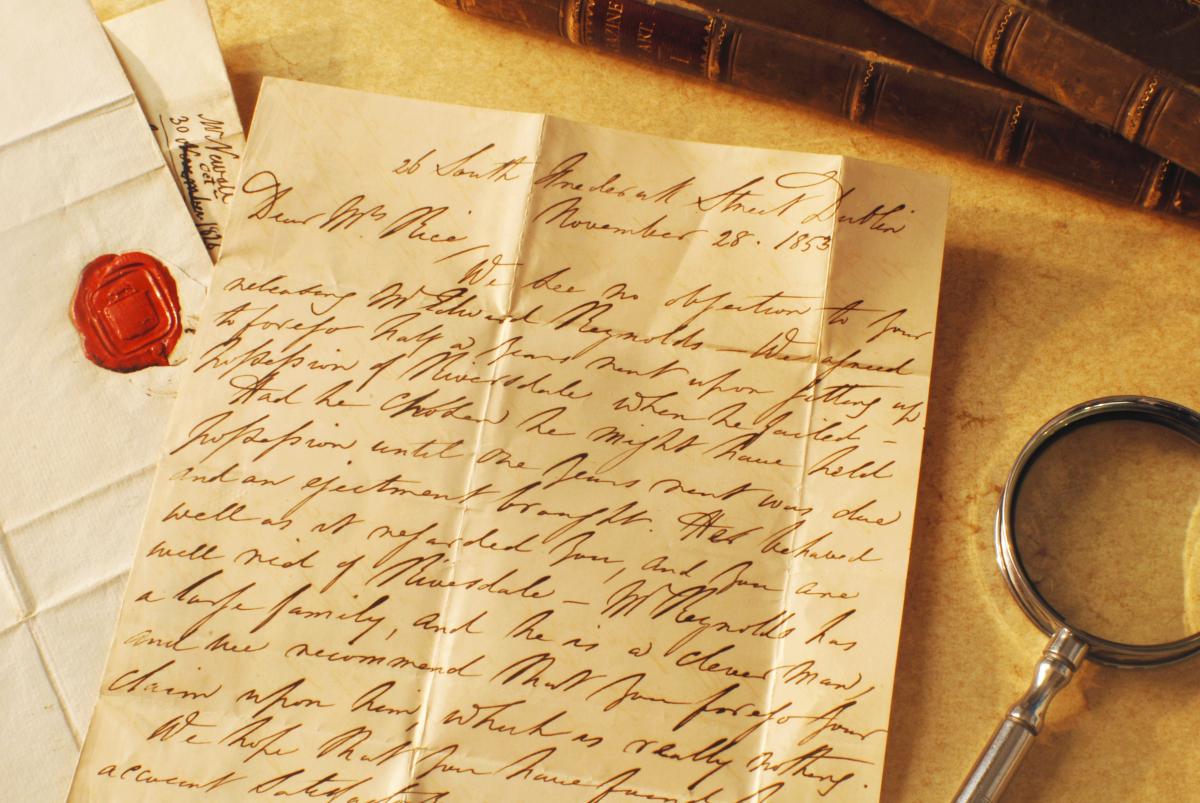 26 South Frederick Street Dublin
November 28. 1853
Dear Mrs Rice,
We see no objection to your
releasing Mr Edward Reynolds — We agreed
to forego half a years rent upon giving up
possession of Riversdale when he failed —
Had he chosen he might have held
possession until one years rent was due
and an ejectment brought. Has behaved
well as it regarded you, and you are
well rid of Riversdale — Mr Reynolds has
a large family, and he is a clever man,
and we recommend that you forego your
claim upon him which is really nothing.
We hope that you have found
account
Mr
30 Oct
November
AZINE
ART.
I